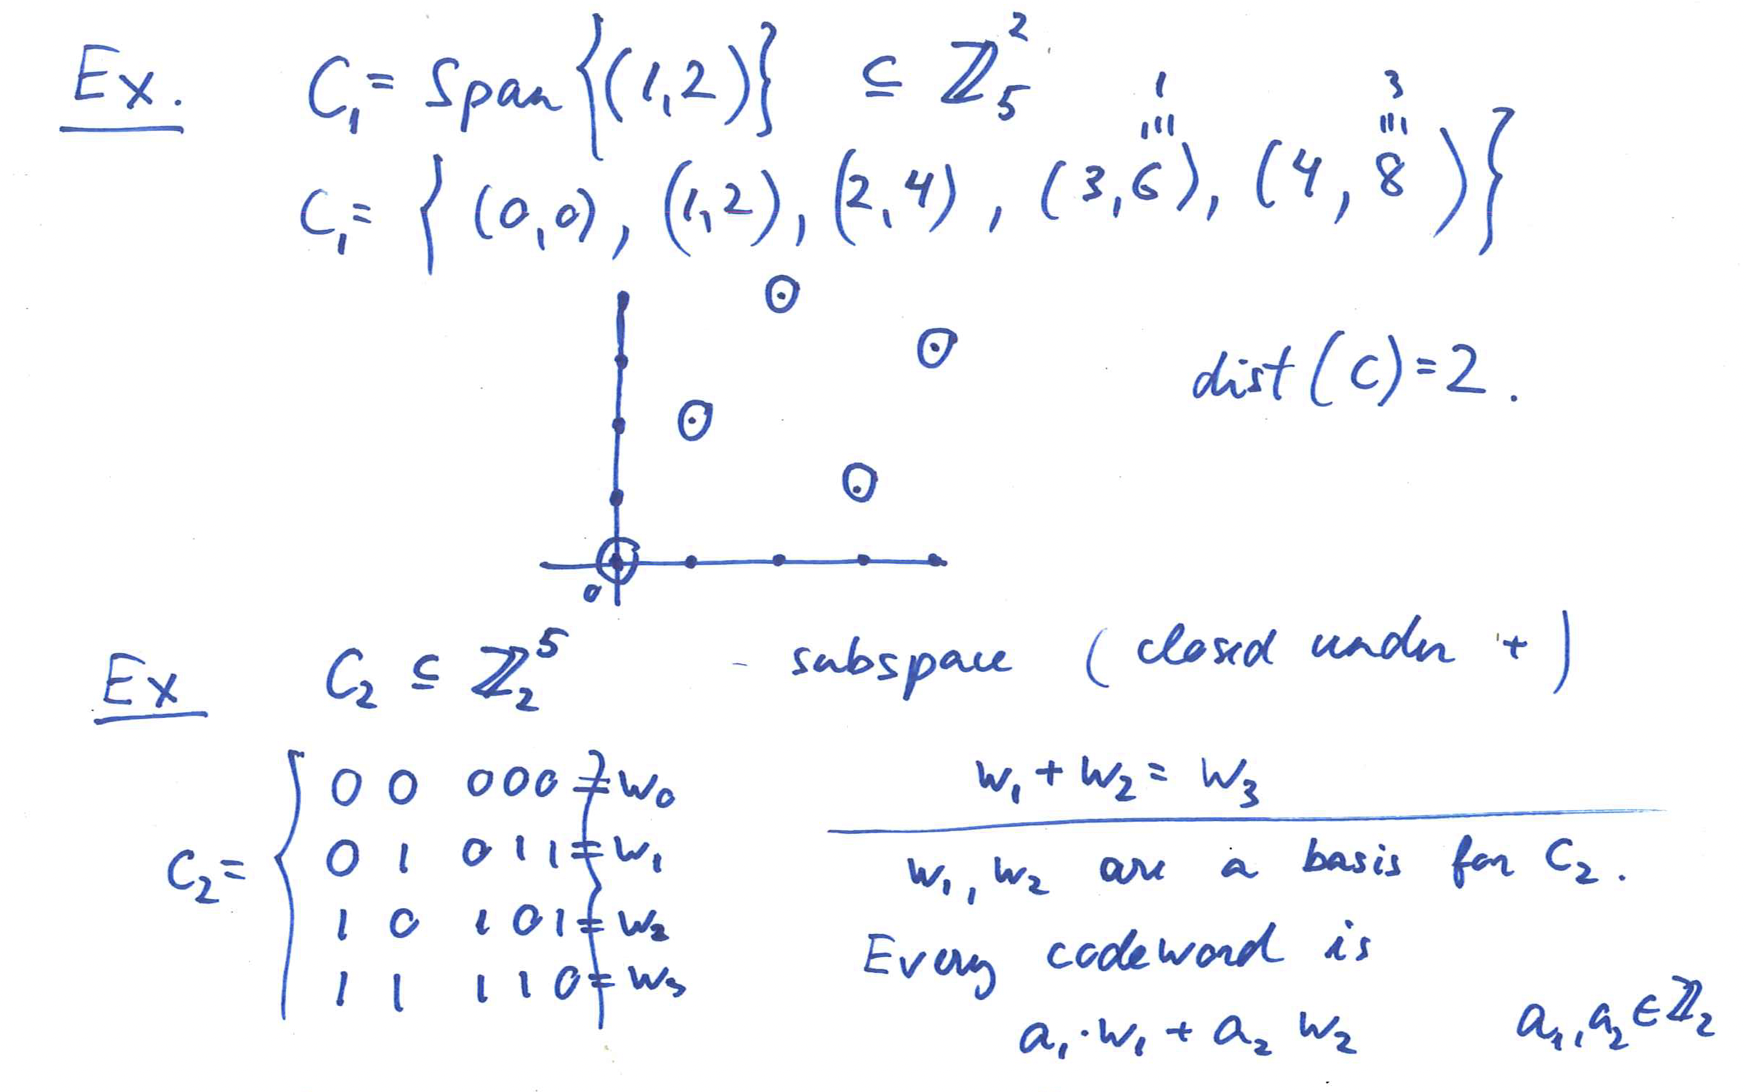 Ex. C₁ = Span {(1,2)} ⊆ ℤ₅².
1 3
≡ ≡
C₁ = { (0,0), (1,2), (2,4), (3,6), (4,8)}
dist(C)=2.
0
Ex C₂ ⊆ ℤ₂⁵ - subspace (closed under +)
C₂ = { 0 0 000 } = w₀
0 1 011 = w₁
1 0 101 = w₂
1 1 110 = w₃
w₁ + w₂ = w₃
w₁, w₂ are a basis for C₂.
Every codeword is
a₁·w₁ + a₂ w₂ a₁, a₂ ∈ ℤ₂